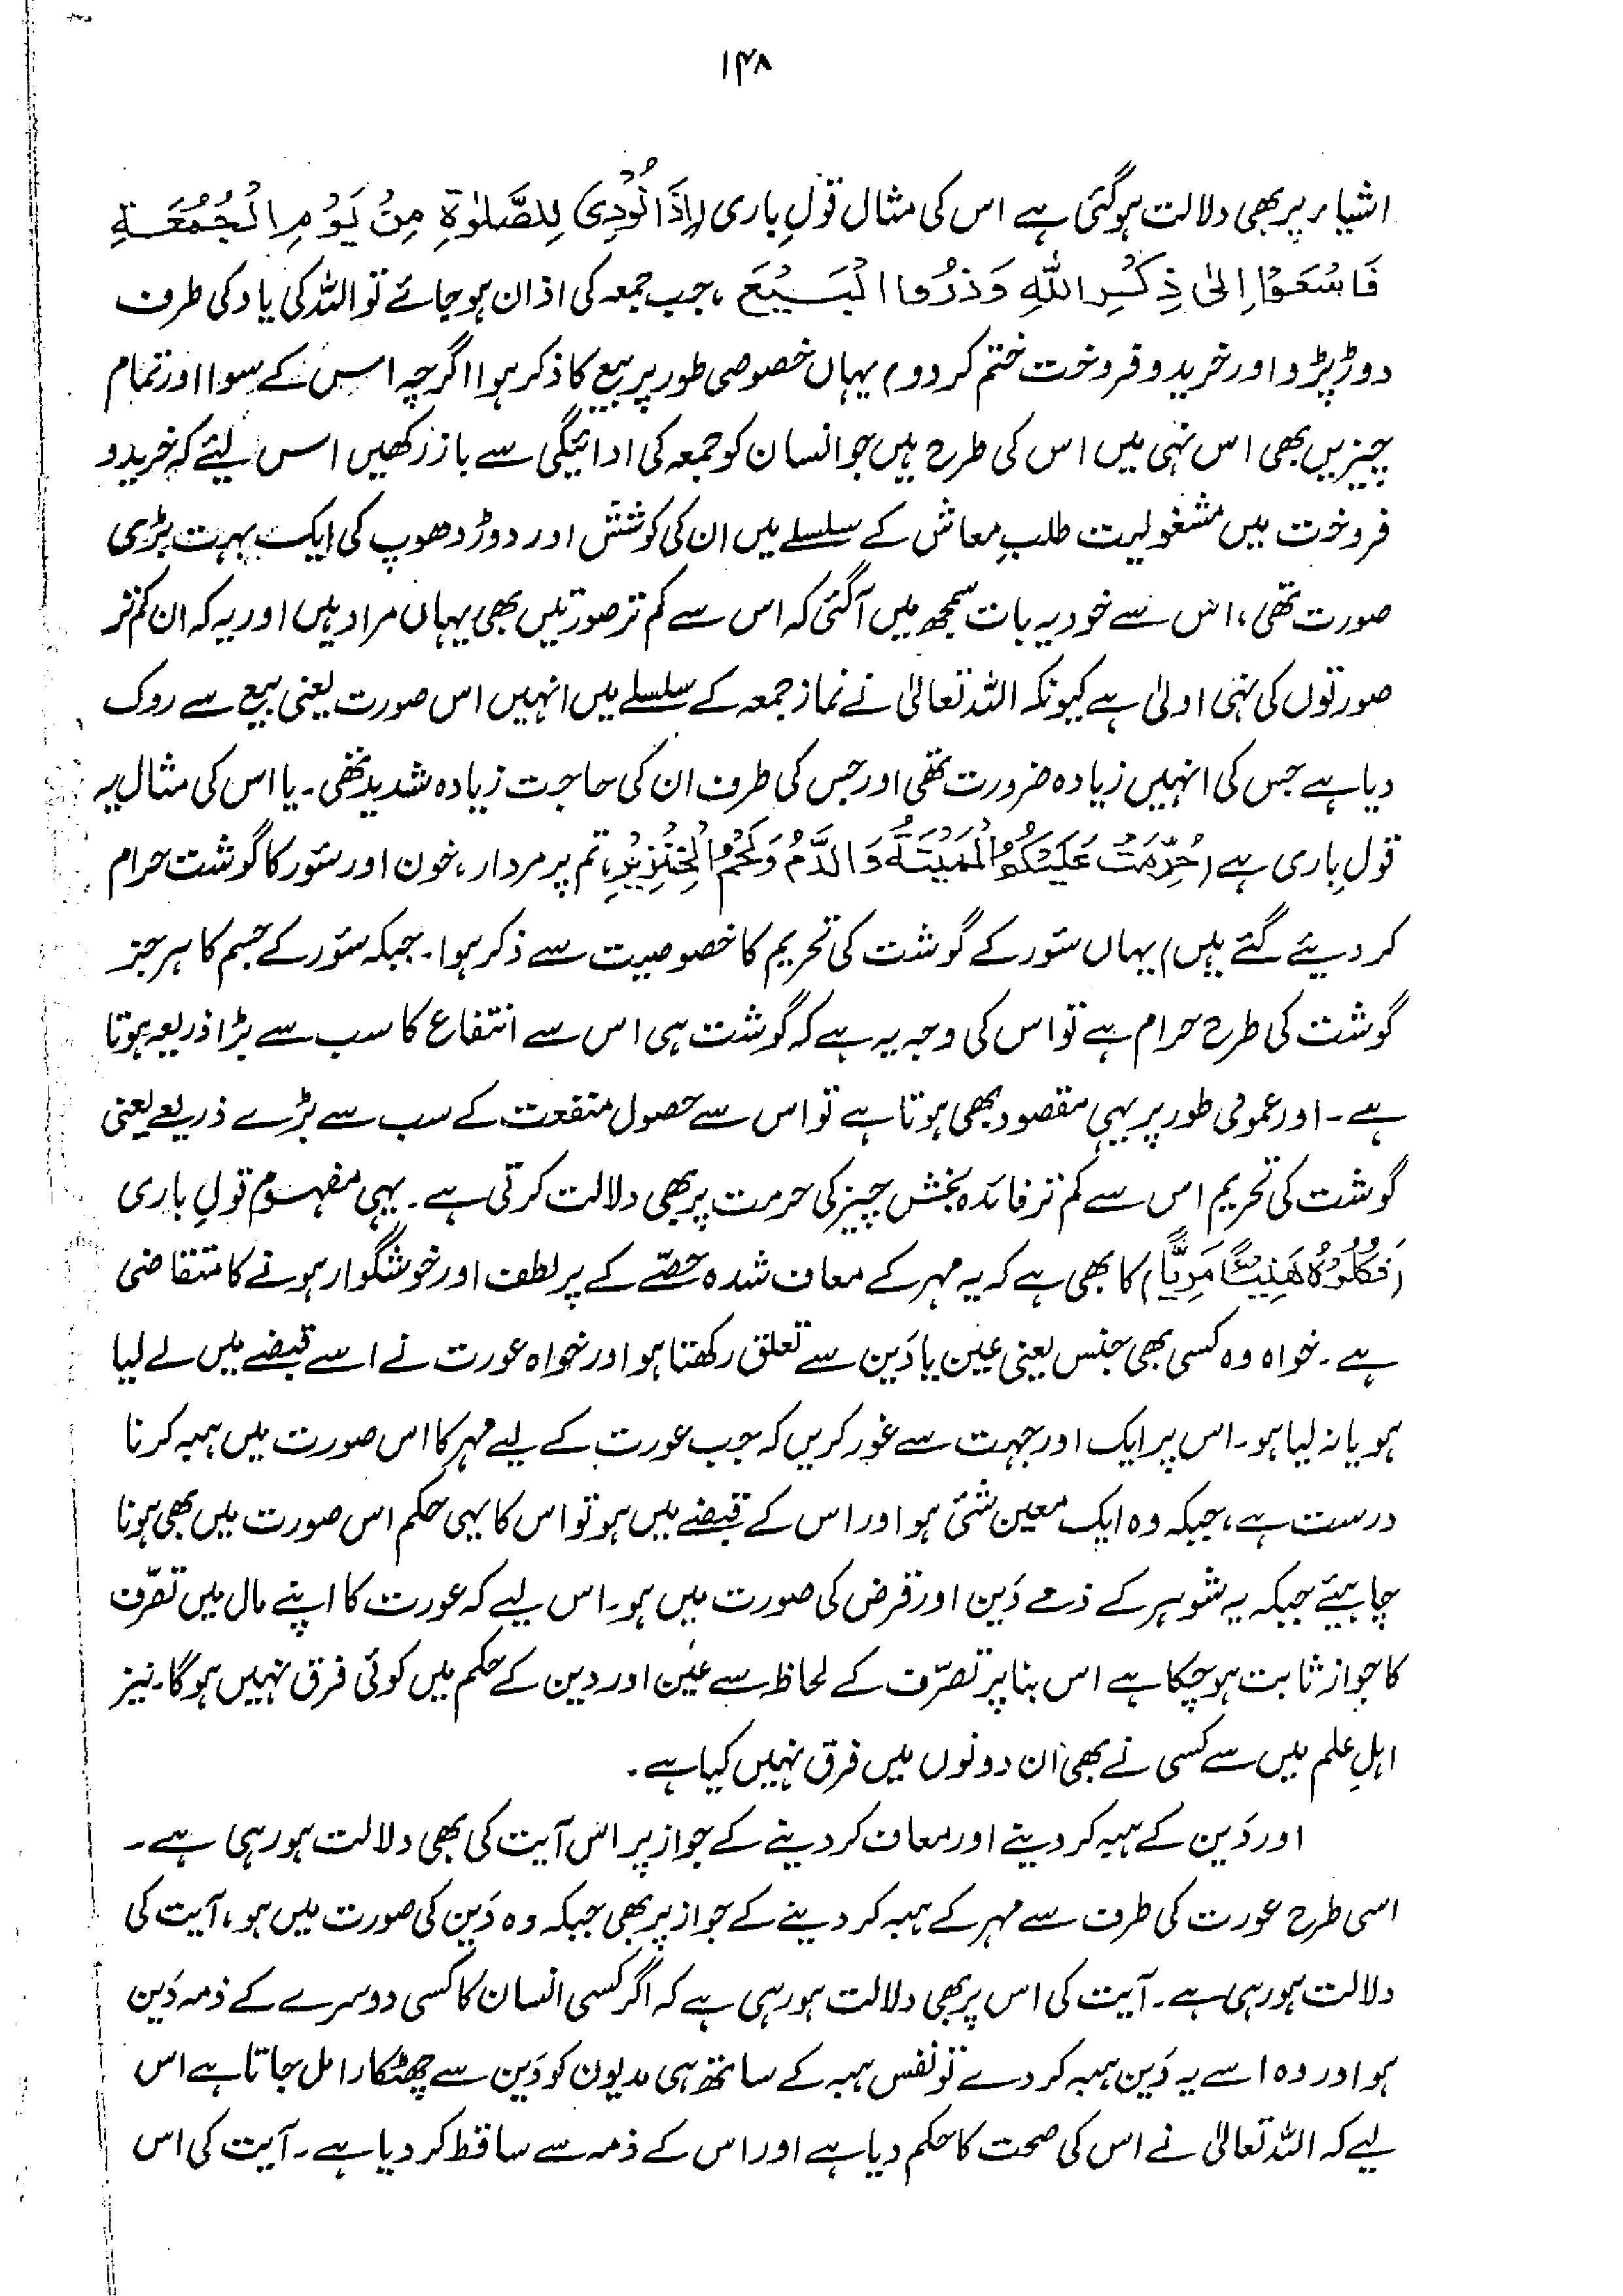 ۱۴۸
اشیاء پر بھی دلالت ہوگئی ہے اس کی مثال قولِ باری (اِذَا نُوْدِیَ لِلصَّلٰوۃِ مِنْ یَوْمِ الْجُمُعَۃِ
فَاسْعَوْا اِلٰی ذِکْرِ اللّٰہِ وَذَرُوا الْبَیْعَ ، جب جمعہ کی اذان ہو جائے تو اللہ کی یاد کی طرف
دوڑ پڑو اور خرید و فروخت ختم کر دو) یہاں خصوصی طور پر بیع کا ذکر ہوا اگرچہ اس کے سوا اور تمام
چیزیں بھی اس نہی میں اس کی طرح ہیں جو انسان کو جمعہ کی ادائیگی سے باز رکھیں اس لیئے کہ خرید و
فروخت میں مشغولیت طلبِ معاش کے سلسلے میں ان کی کوشش اور دوڑ دھوپ کی ایک بہت بڑی
صورت تھی ، اس سے خود یہ بات سمجھ میں آگئی کہ اس سے کم تر صورتیں بھی یہاں مراد ہیں اور یہ کہ ان کم تر
صورتوں کی نہی اولیٰ ہے کیونکہ اللہ تعالیٰ نے نماز جمعہ کے سلسلے میں انہیں اس صورت یعنی بیع سے روک
دیا ہے جس کی انہیں زیادہ ضرورت تھی اور جس کی طرف ان کی حاجت زیادہ شدید تھی ۔ یا اس کی مثال یہ
قولِ باری ہے (حُرِّمَتْ عَلَیْکُمُ الْمَیْتَۃُ وَالدَّمُ وَلَحْمُ الْخِنْزِیْرِ، تم پر مردار ، خون اور سؤر کا گوشت حرام
کر دیئے گئے ہیں) یہاں سؤر کے گوشت کی تحریم کا خصوصیت سے ذکر ہوا ۔ جبکہ سؤر کے جسم کا ہر جز
گوشت کی طرح حرام ہے تو اس کی وجہ یہ ہے کہ گوشت ہی اس سے انتفاع کا سب سے بڑا ذریعہ ہوتا
ہے ۔ اور عمومی طور پر یہی مقصود بھی ہوتا ہے تو اس سے حصول منفعت کے سب سے بڑے ذریعے یعنی
گوشت کی تحریم اس سے کم تر فائدہ بخش چیز کی حرمت پر بھی دلالت کرتی ہے ۔ یہی مفہوم قولِ باری
(فَکُلُوْہُ ھَنِیْئًا مَّرِیًّا) کا بھی ہے کہ یہ مہر کے معاف شدہ حصّے کے پرلطف اور خوشگوار ہونے کا متقاضی
ہے ۔ خواہ وہ کسی بھی جنس یعنی عین یا دَین سے تعلق رکھتا ہو اور خواہ عورت نے اسے قبضے میں لے لیا
ہو یا نہ لیا ہو ۔ اس پر ایک اور جہت سے غور کریں کہ جب عورت کے لیے مہر کا اس صورت میں ہبہ کرنا
درست ہے ، جبکہ وہ ایک معین شئی ہو اور اس کے قبضے میں ہو تو اس کا یہی حکم اس صورت میں بھی ہونا
چاہیئے جبکہ یہ شوہر کے ذمے دَین اور قرض کی صورت میں ہو ۔ اس لیے کہ عورت کا اپنے مال میں تصرّف
کا جواز ثابت ہو چکا ہے اس بنا پر تصرّف کے لحاظ سے عَین اور دین کے حکم میں کوئی فرق نہیں ہو گا ۔ نیز
اہلِ علم میں سے کسی نے بھی ان دونوں میں فرق نہیں کیا ہے ۔
اور دَین کے ہبہ کر دینے اور معاف کر دینے کے جواز پر اس آیت کی بھی دلالت ہو رہی ہے ۔
اسی طرح عورت کی طرف سے مہر کے ہبہ کر دینے کے جواز پر بھی جبکہ وہ دَین کی صورت میں ہو ، آیت کی
دلالت ہو رہی ہے ۔ آیت کی اس پر بھی دلالت ہو رہی ہے کہ اگر کسی انسان کا کسی دوسرے کے ذمہ دَین
ہو اور وہ اسے یہ دَین ہبہ کر دے تو نفس ہبہ کے ساتھ ہی مدیون کو دَین سے چھٹکارا مل جاتا ہے اس
لیے کہ اللہ تعالیٰ نے اس کی صحت کا حکم دیا ہے اور اس کے ذمہ سے ساقط کر دیا ہے ۔ آیت کی اس